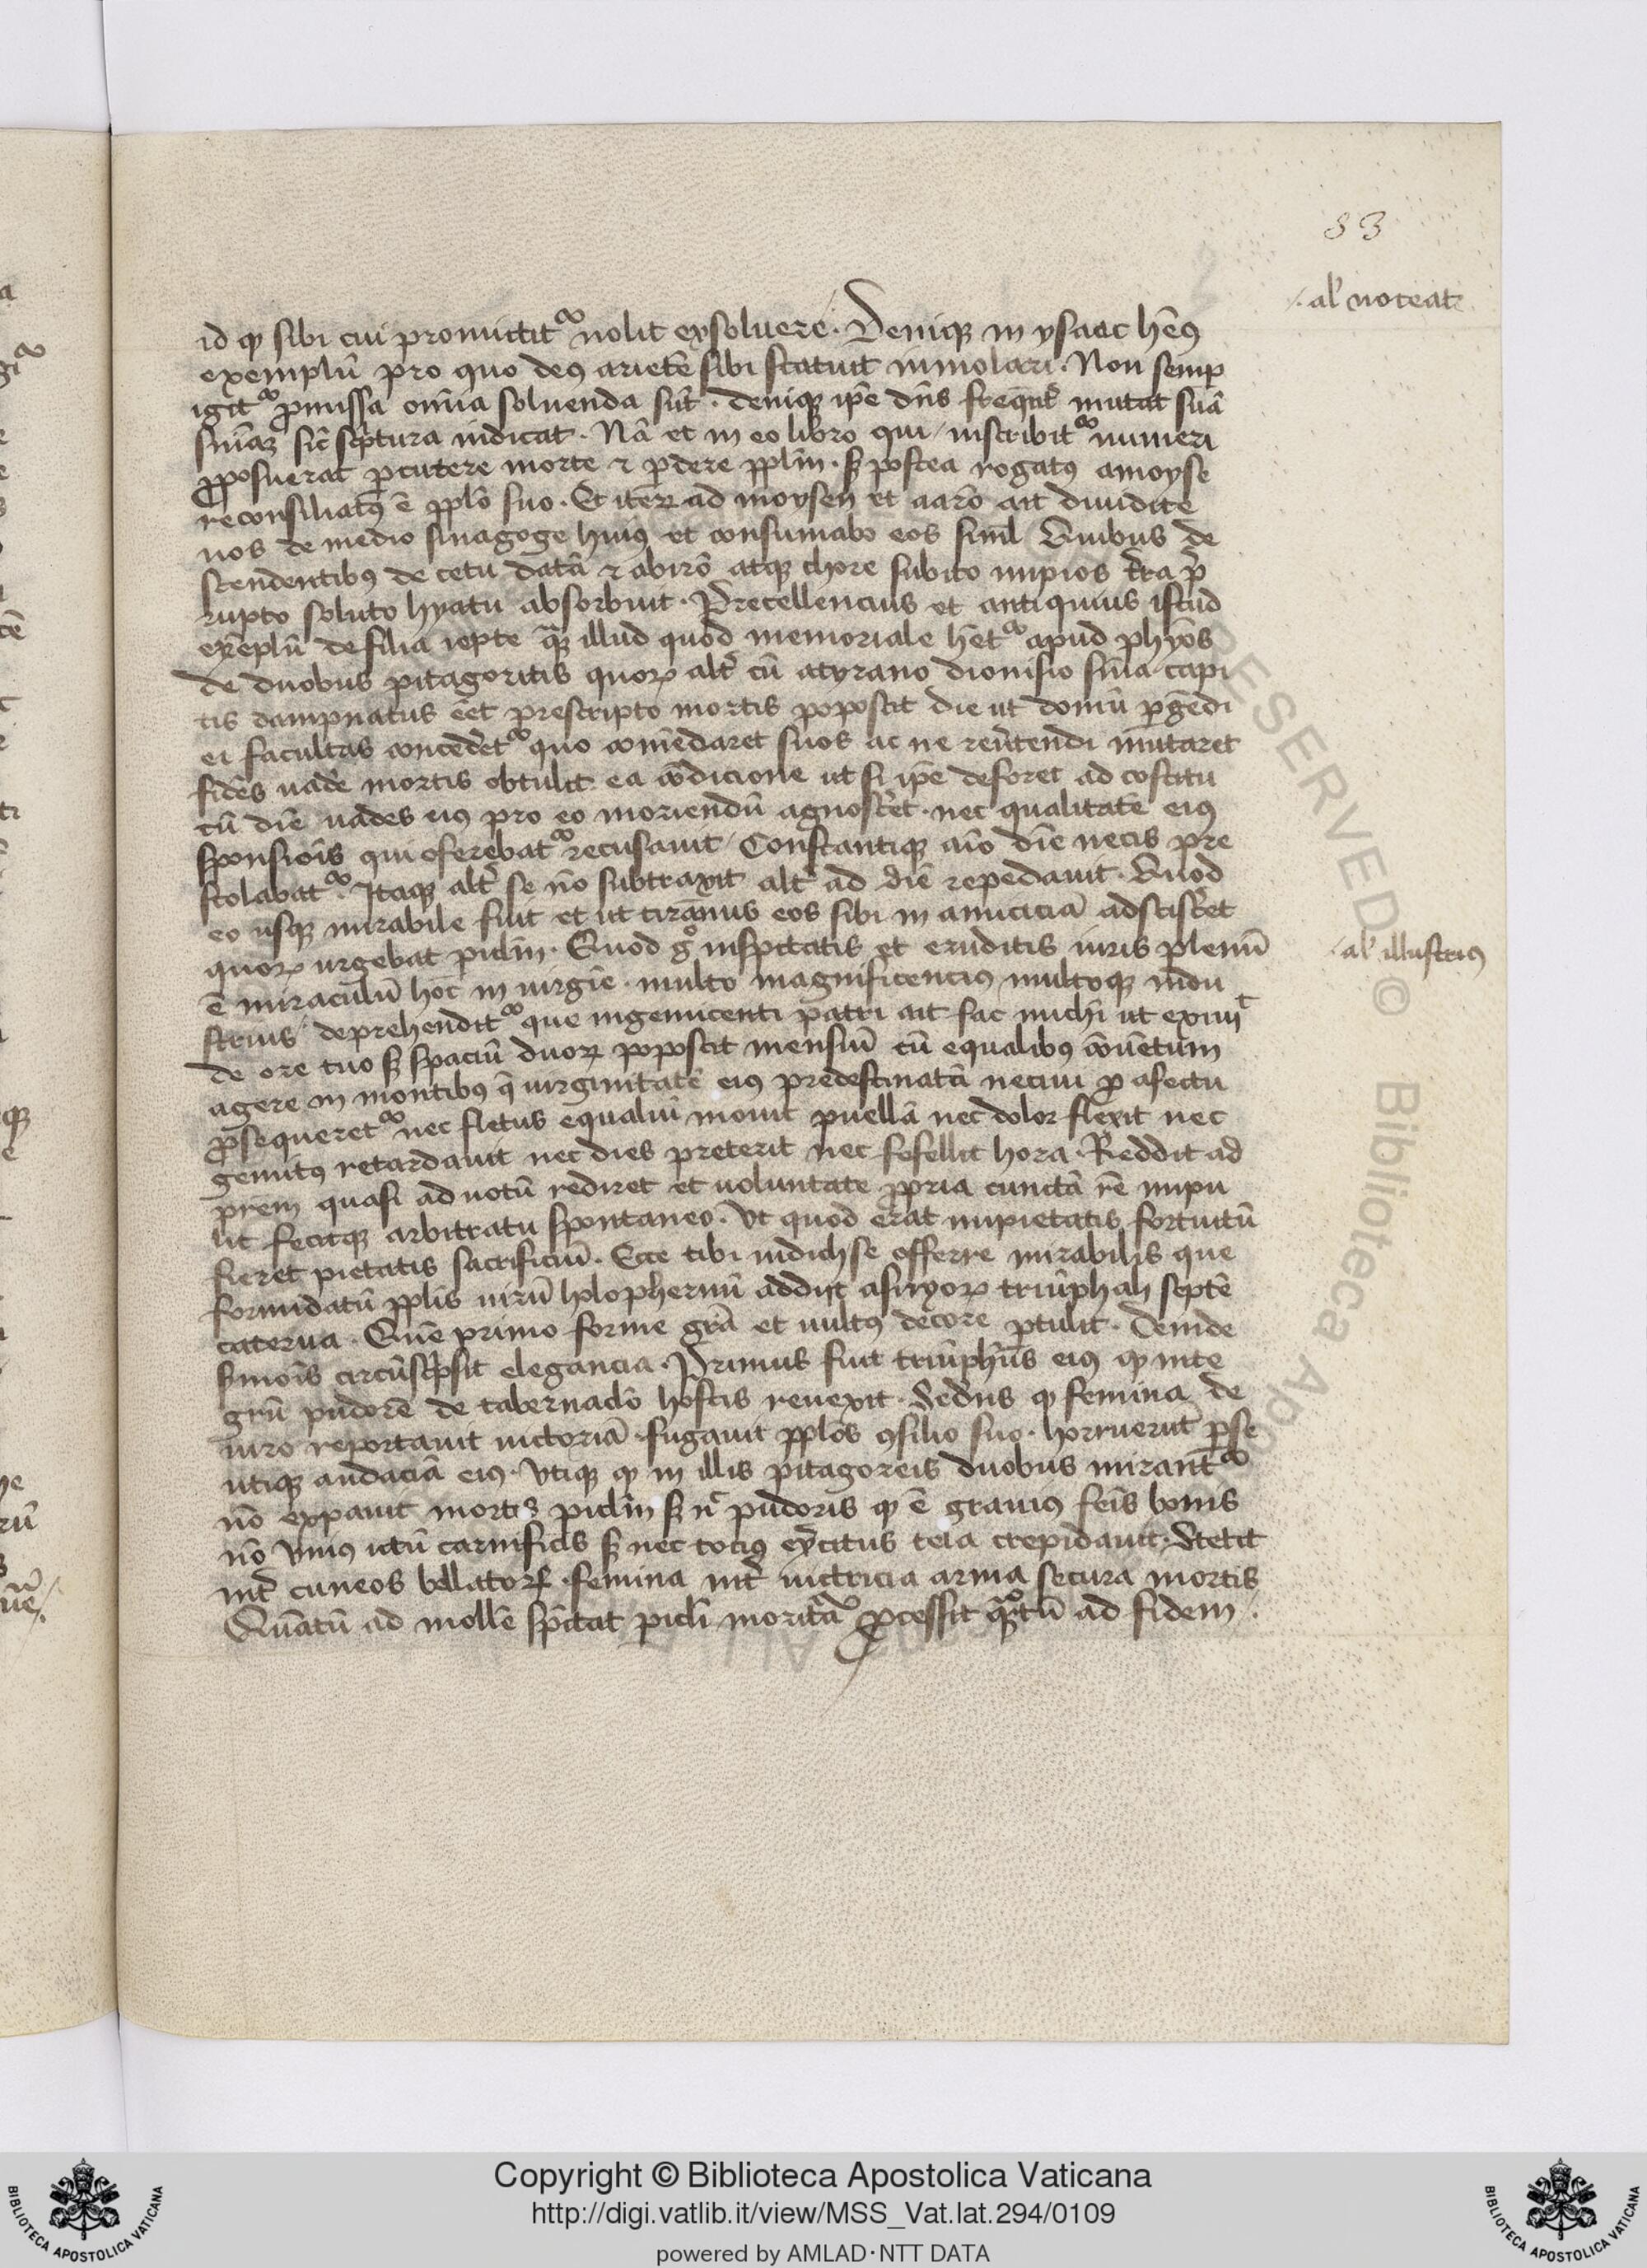 83
al' noceat2
id qꝫ sibi cui promittitᷣ nolit exsoluere. Deniqꝫ in ysaac hēꝰ
exemplū pro quo deꝰ arietē sibi statuit inmolari. Non semp
igitᷣ ꝓmissa om̄ia soluenda sūt. deniqꝫ ip̄e dn̄s freq̄nt᷑ mutat suā
sn̄iaꝫ sic̄ sc̄ptura indicat. Nā et in eo libro qui inscribitᷣ numeri
ꝓposuerat ꝑcutere morte ⁊ ꝑdere pp̄lm. sꝫ postea rogatꝰ amoyse
reconsiliatꝰ ē pp̄lo suo. Et iterꝝ ad moysen et aarō ait diuidite
uos de medio sinagoge huiꝰ et consumabo eos siml̄ Quibus de
scendentibꝰ de cetu datā ⁊ abirō atqꝫ chore subito impios t᷑ra p̄
rupto soluto hyatu absorbuit. Precellencius et antiquius istud
exēplū de filia iepte qᷓꝫ illud quod memoriale hētᷣ apud ph̄yos
de duobus pitagoritis quoꝝ alt᷑ cū atyrano dionisio sn̄ia capi
tis dampnatus eēt prescripto mortis poposcit die ut domū ꝑgēdi
ei facultas conced᷑etᷣ quo comēdaret suos ac ne reu᷑tendi mutaret
fidēs uadē mortis obtulit ea cōdicione ut si ip̄e deforet ad cōstitu
tū diē uades eiꝰ pro eo moriendū agnosc᷑et. nec qualitatē eiꝰ
sponsiōis qui oferebatᷣ recusauit Constantiqꝫ aīo diē necis pre
stolabatᷣ. Itaqꝫ alt᷑ se nō subtraxit alt᷑ ad diē repedauit. Quod
eo usqꝫ mirabile fuit et ut tirannus eos sibi in amiciciā adscisc᷑et
quoꝝ urgebat piclm̄. Quod gͦ inspctatis et eruditis iuris plenū
al' illustriꝰ
ē miraculū hoc in uirgīe. multo magnificenciꝰ multoqꝫ indu
strius deprehenditᷣ que ingemiscenti patri ait fac michi ut exiuit
de ore tuo sꝫ spaciū duoꝝ poposcit mensiū cū equalibꝰ cōuētum
agere in montibꝰ q̄ uirginitatē eiꝰ predestinatā necui ꝓ afectu
ꝓsequeretᷣ nec fletus equaliū mouit puellā nec dolor flexit nec
gemitꝰ retardauit nec dies preterit nec fefellit hora. Reddit ad
prēm quasi ad uotū rediret et uoluntate ꝓpria cunctā rē impu
lit fecitqꝫ arbitratu spontaneo. Vt quod erat impietatis fortuitū
fieret pietatis sacrificiū. Ecce tibi iudich se offerre mirabilis que
formidatū pp̄lis uirū holophernū addiit asiryoꝝ triūphali septē
caterua. Quē primo forme gr̄a et uultꝰ decore ꝑtulit. Deinde
sꝛmōis circūsc̄psit elegancia. Primus fuit triūph᷑us eiꝰ qꝫ inte
grū pudorē de tabernac̄lo hostis reuexit. Sed᷑us qꝫ femina de
uiro reportauit uictoriā. fugauit pp̄los ꝯsilio suo. horruerūt ꝑse
utiqꝫ audaciā eiꝰ. Vtiqꝫ qꝫ in illis pitagoreis duobus mirantᷣ
nō expauit mortis piclm̄ sꝫ nͨ pudoris qꝫ ē grauiꝰ feīs bonis
nō vniꝰ ictū carnificis sꝫ nec tociꝰ ex᷑citus tela trepidauit. Stetit
int᷑ cuneos bellatoꝝ. femina int᷑ uictricia arma secura mortis
Quātū ad mollē sp̄ctat picl̄i moritᷣa ꝓcessit qᷓꝫtū ad fidem.